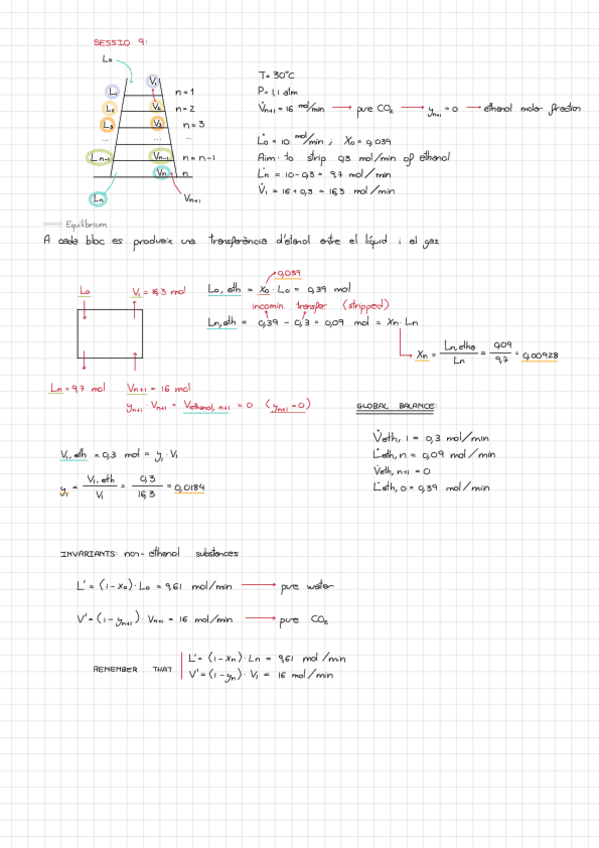 SESSIO 9:
L₀
V₁
L₁
n = 1
L₂
V₂
n = 2
L₃
V₃
n = 3
...
...
...
Lₙ₋₁
Vₙ₋₁
n = n-1
Vₙ
n
Lₙ
Vₙ₊₁
T = 30°C
P = 1,1 atm
V̇ₙ₊₁ = 16 mol/min → pure CO₂ → yₙ₊₁ = 0 → ethanol molar fraction
L̇₀ = 10 mol/min ; X₀ = 0,039
Aim: to strip 0,3 mol/min of ethanol
L̇ₙ = 10 - 0,3 = 9,7 mol/min
V̇₁ = 16 + 0,3 = 16,3 mol/min
Equilibrium
A cada bloc es produeix una transferència d'etanol entre el líquid i el gas
L₀
V₁ = 16,3 mol
Lₙ = 9,7 mol
Vₙ₊₁ = 16 mol
yₙ₊₁ · Vₙ₊₁ = Vethanol, n+1 = 0 (yₙ₊₁ = 0)
0,039
L₀, eth = X₀ · L₀ = 0,39 mol
incomin. transfer (stripped)
Lₙ, eth = 0,39 - 0,3 = 0,09 mol = Xₙ · Lₙ
Xₙ = Lₙ, etha / Lₙ = 0,09 / 9,7 = 0,00928
GLOBAL BALANCE:
V̇eth, 1 = 0,3 mol/min
L̇eth, n = 0,09 mol/min
V̇eth, n+1 = 0
L̇eth, 0 = 0,39 mol/min
V₁, eth = 0,3 mol = y₁ · V₁
y₁ = V₁, eth / V₁ = 0,3 / 16,3 = 0,0184
INVARIANTS: non-ethanol substances
L' = (1 - X₀) · L₀ = 9,61 mol/min → pure water
V' = (1 - yₙ₊₁) · Vₙ₊₁ = 16 mol/min → pure CO₂
REMEMBER THAT
L' = (1 - Xₙ) · Lₙ = 9,61 mol/min
V' = (1 - yₙ) · V₁ = 16 mol/min